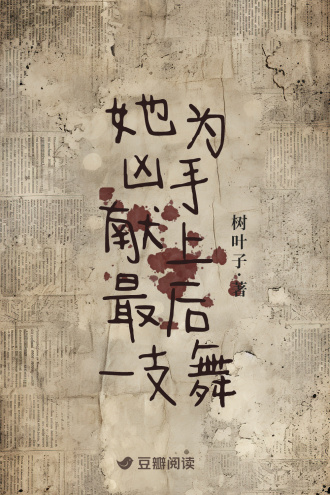 她为
凶手
献上
最后
一支舞
树叶子·著
豆瓣阅读